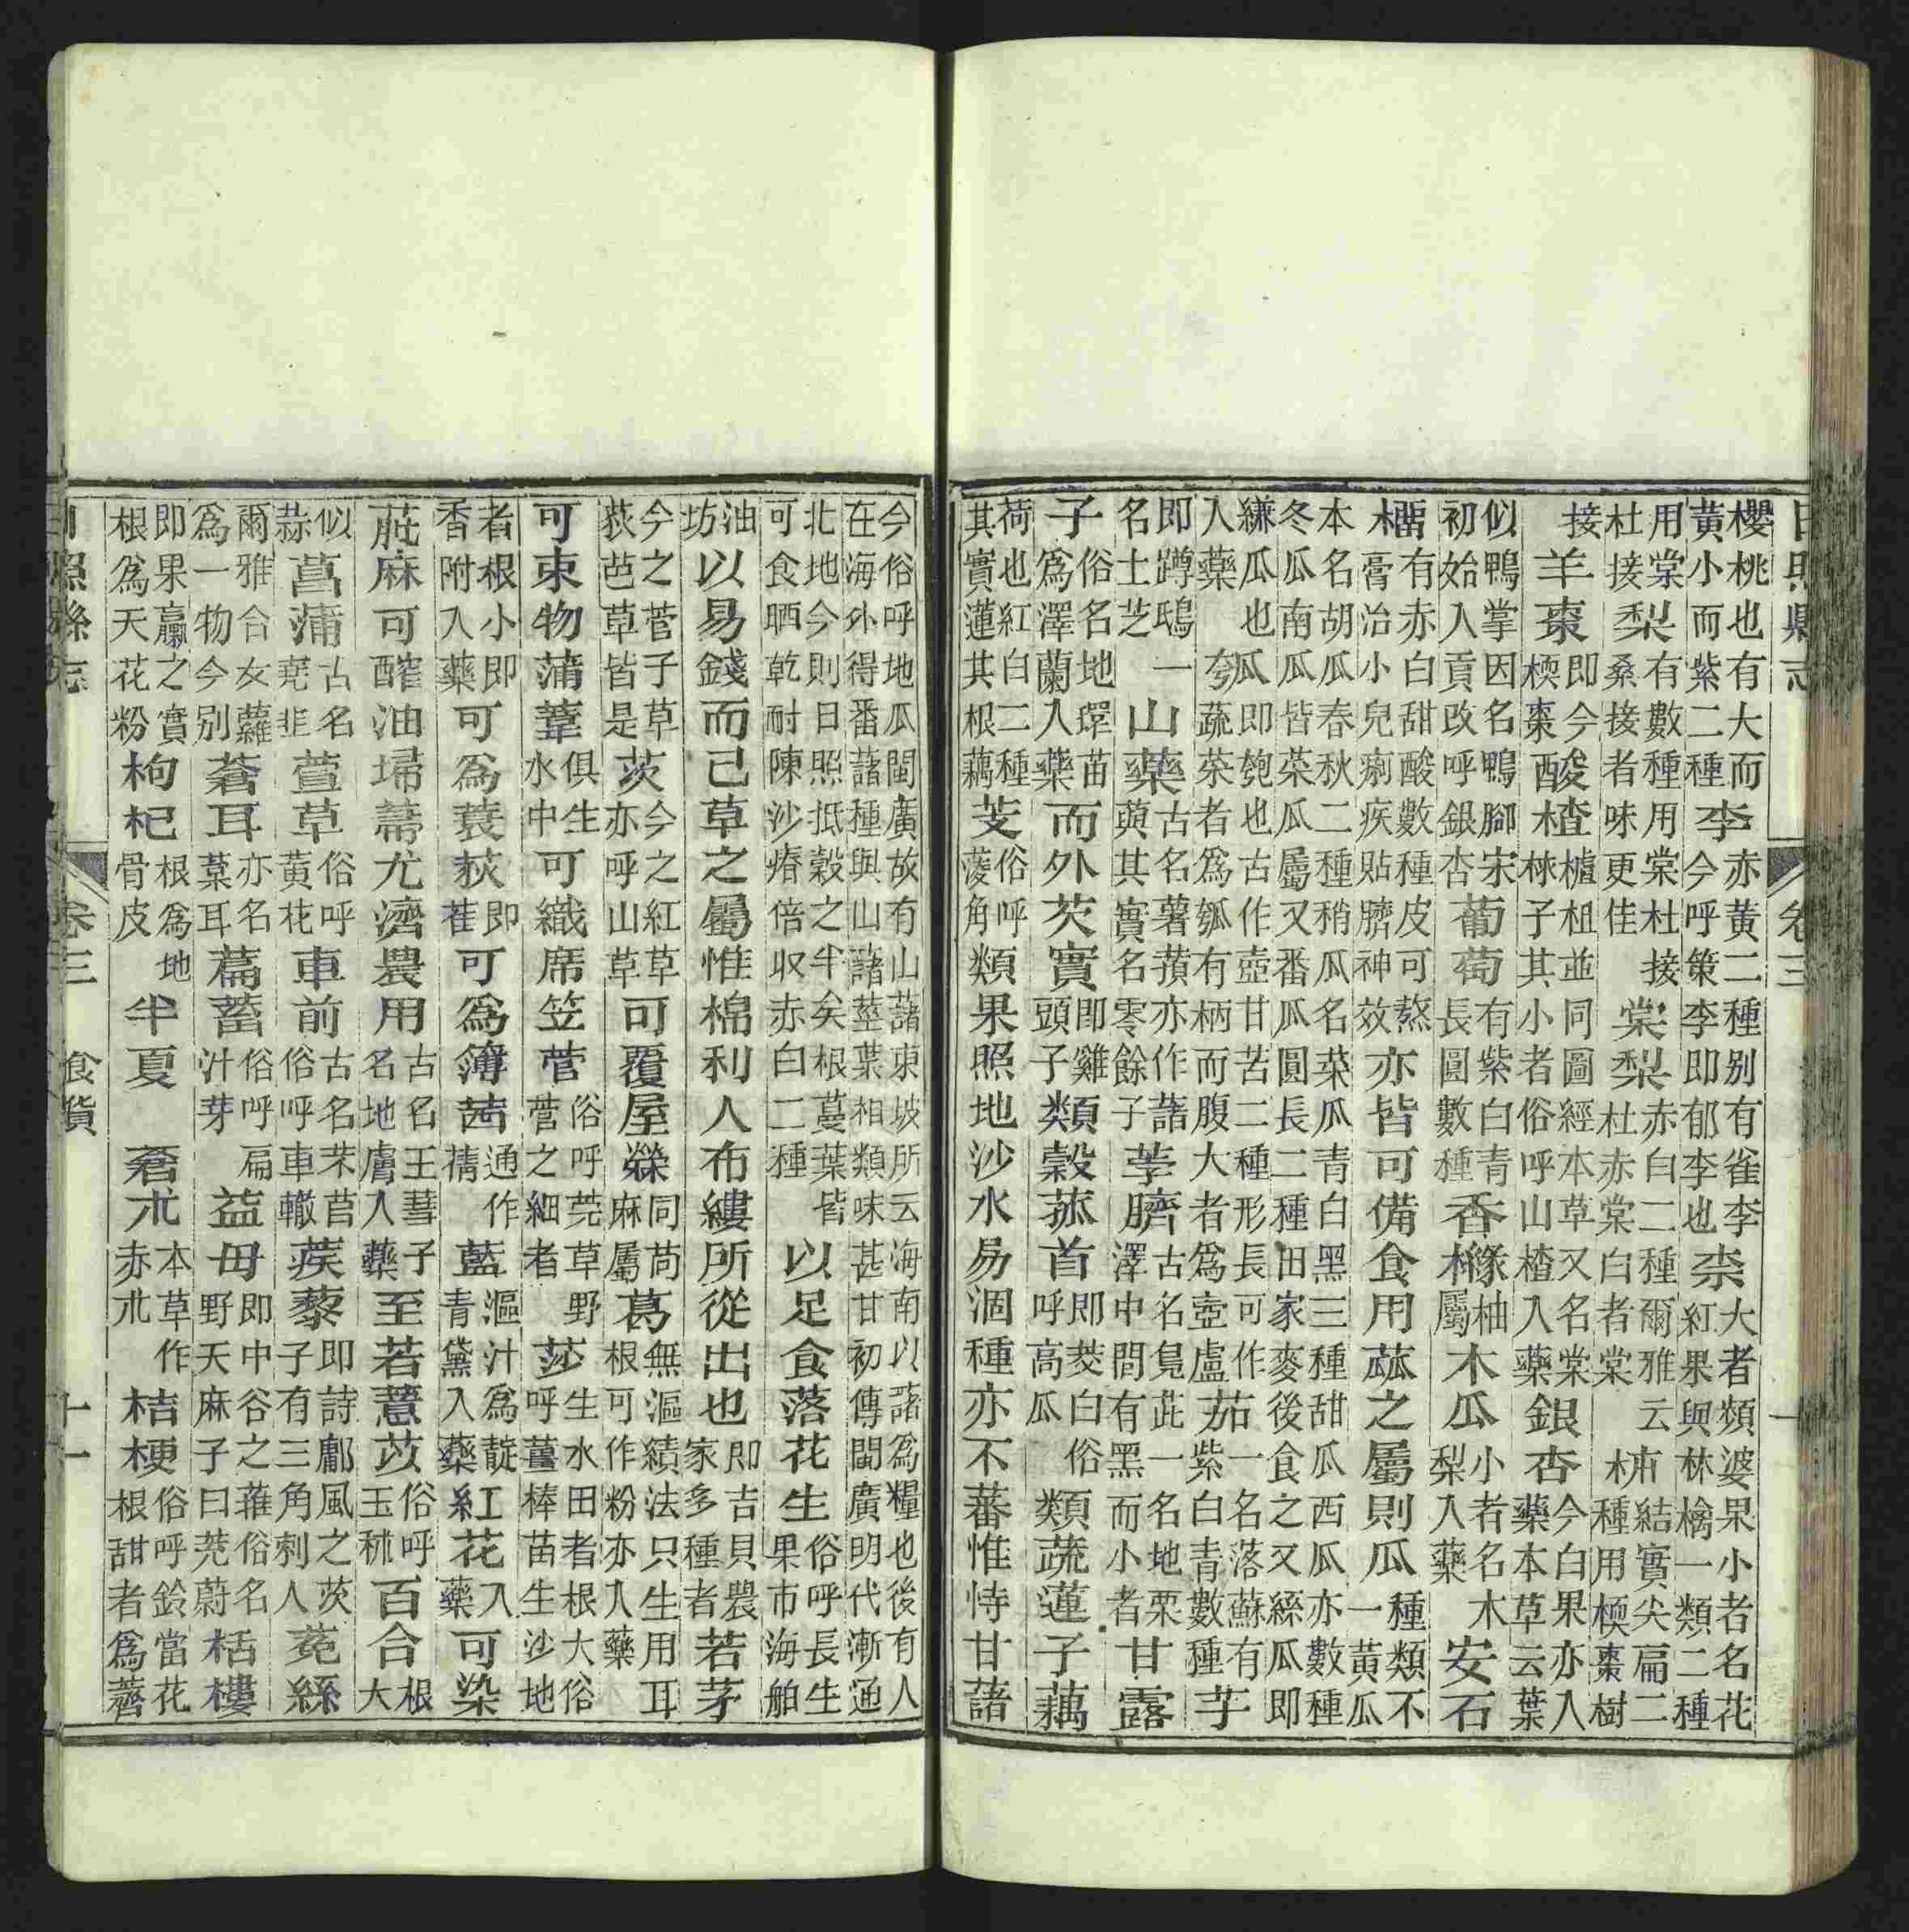 日照縣志 卷三
櫻桃也有大而黃小而紫二種李赤黃二種别有雀李今呼策李即郁李也柰大者頻婆果小者名花紅果與林檎一類二種
用棠杜接梨有數種用棠杜接桑接者味更佳棠梨赤白二種爾雅云杜赤棠白者棠枾結實尖扁二種用㮕棗樹
接羊棗即今㮕棗酸楂樝柤並同圖經本草又名棠梂子其小者俗呼山楂入藥銀杏今白果亦入藥本草云葉
似鴨掌因名鴨腳宋初始入貢改呼銀杏葡萄有紫白青長圓數種香櫞柚屬木瓜小者名木梨入藥安石
榴有赤白甜酸數種皮可熬膏治小兒痢疾貼臍神效亦皆可備食用蓏之屬則瓜種類不一黃瓜
本名胡瓜春秋二種稍瓜名菜瓜青白黑三種甜瓜西瓜亦數種冬瓜南瓜皆菜瓜屬又番瓜圓長二種田家麥後食之又絲瓜即
縑瓜也入藥瓠即匏也古作壺甘苦二種形長可作蔬菜者為瓠有柄而腹大者為壺盧茄一名落蘇有紫白青數種芋
即蹲鴟一名土芝山藥古名薯蕷亦作藷與其實名零餘子荸臍古名鳧茈一名地栗澤中間有黑而小者甘露
子俗名地環苗為澤蘭入藥而外芡實即雞頭子類穀菰首即茭白俗呼高瓜類蔬蓮子藕
荷也紅白二種其實蓮其根藕芰俗呼蔆角類果照地沙水易涸種亦不蕃惟恃甘藷
今俗呼地瓜閩廣故有山藷東坡所云海南以藷為糧也後有人在海外得番藷種與山藷莖葉相類味甚甘初傳閩廣明代漸通
北地今則日照抵穀之半矣根蔓葉皆可食晒乾耐陳沙瘠倍収赤白二種以足食落花生俗呼長生果市海舶
油坊以易錢而已草之屬惟棉利人布縷所從出也即吉貝農家多種者若茅
今之菅子草荻芭草皆是茨今之紅草亦呼山草可覆屋檾同苘麻屬葛無漚績法只生用耳根可作粉亦入藥
可束物蒲葦俱生水中可織席笠菅俗呼莞草野菅之細者莎生水田者根大俗呼薑棒苗生沙地
者根小即香附入藥可為蓑荻即萑可為簿茜通作蒨藍漚汁為靛青黛入藥紅花入藥可染
蓖麻可醡油埽蔧尤濟農用古名王彗子名地膚入藥至若薏苡俗呼玉秫百合根大
似蒜菖蒲古名堯韭萱草俗呼黃花車前古名芣苢俗呼車轍蒺藜即詩鄘風之茨子有三角刺人菟絲
爾雅合女蘿為一物今別蒼耳亦名葈耳萹蓄俗呼扁汁芽益母即中谷之蓷俗名野天麻子曰茺蔚栝樓
即果臝之實根為天花粉枸杞根為地骨皮半夏蒼朮本草作赤朮桔梗俗呼鈴當花根甜者為薺
日照縣志 卷三 食貨 十一